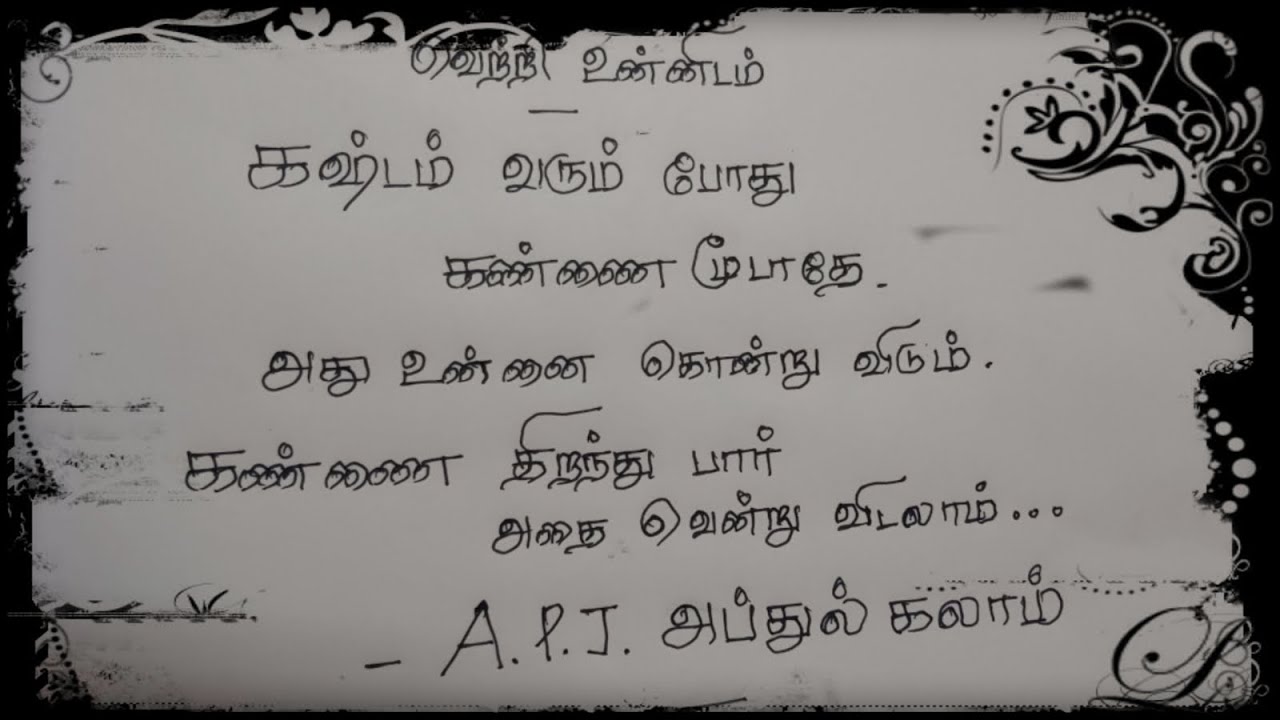 வெற்றி உன்னிடம்
கஷ்டம் வரும் போது
கண்ணை மூடாதே.
அது உன்னை கொன்று விடும்.
கண்ணை திறந்து பார்
அதை வென்று விடலாம்...
- A.P.J. அப்துல் கலாம்